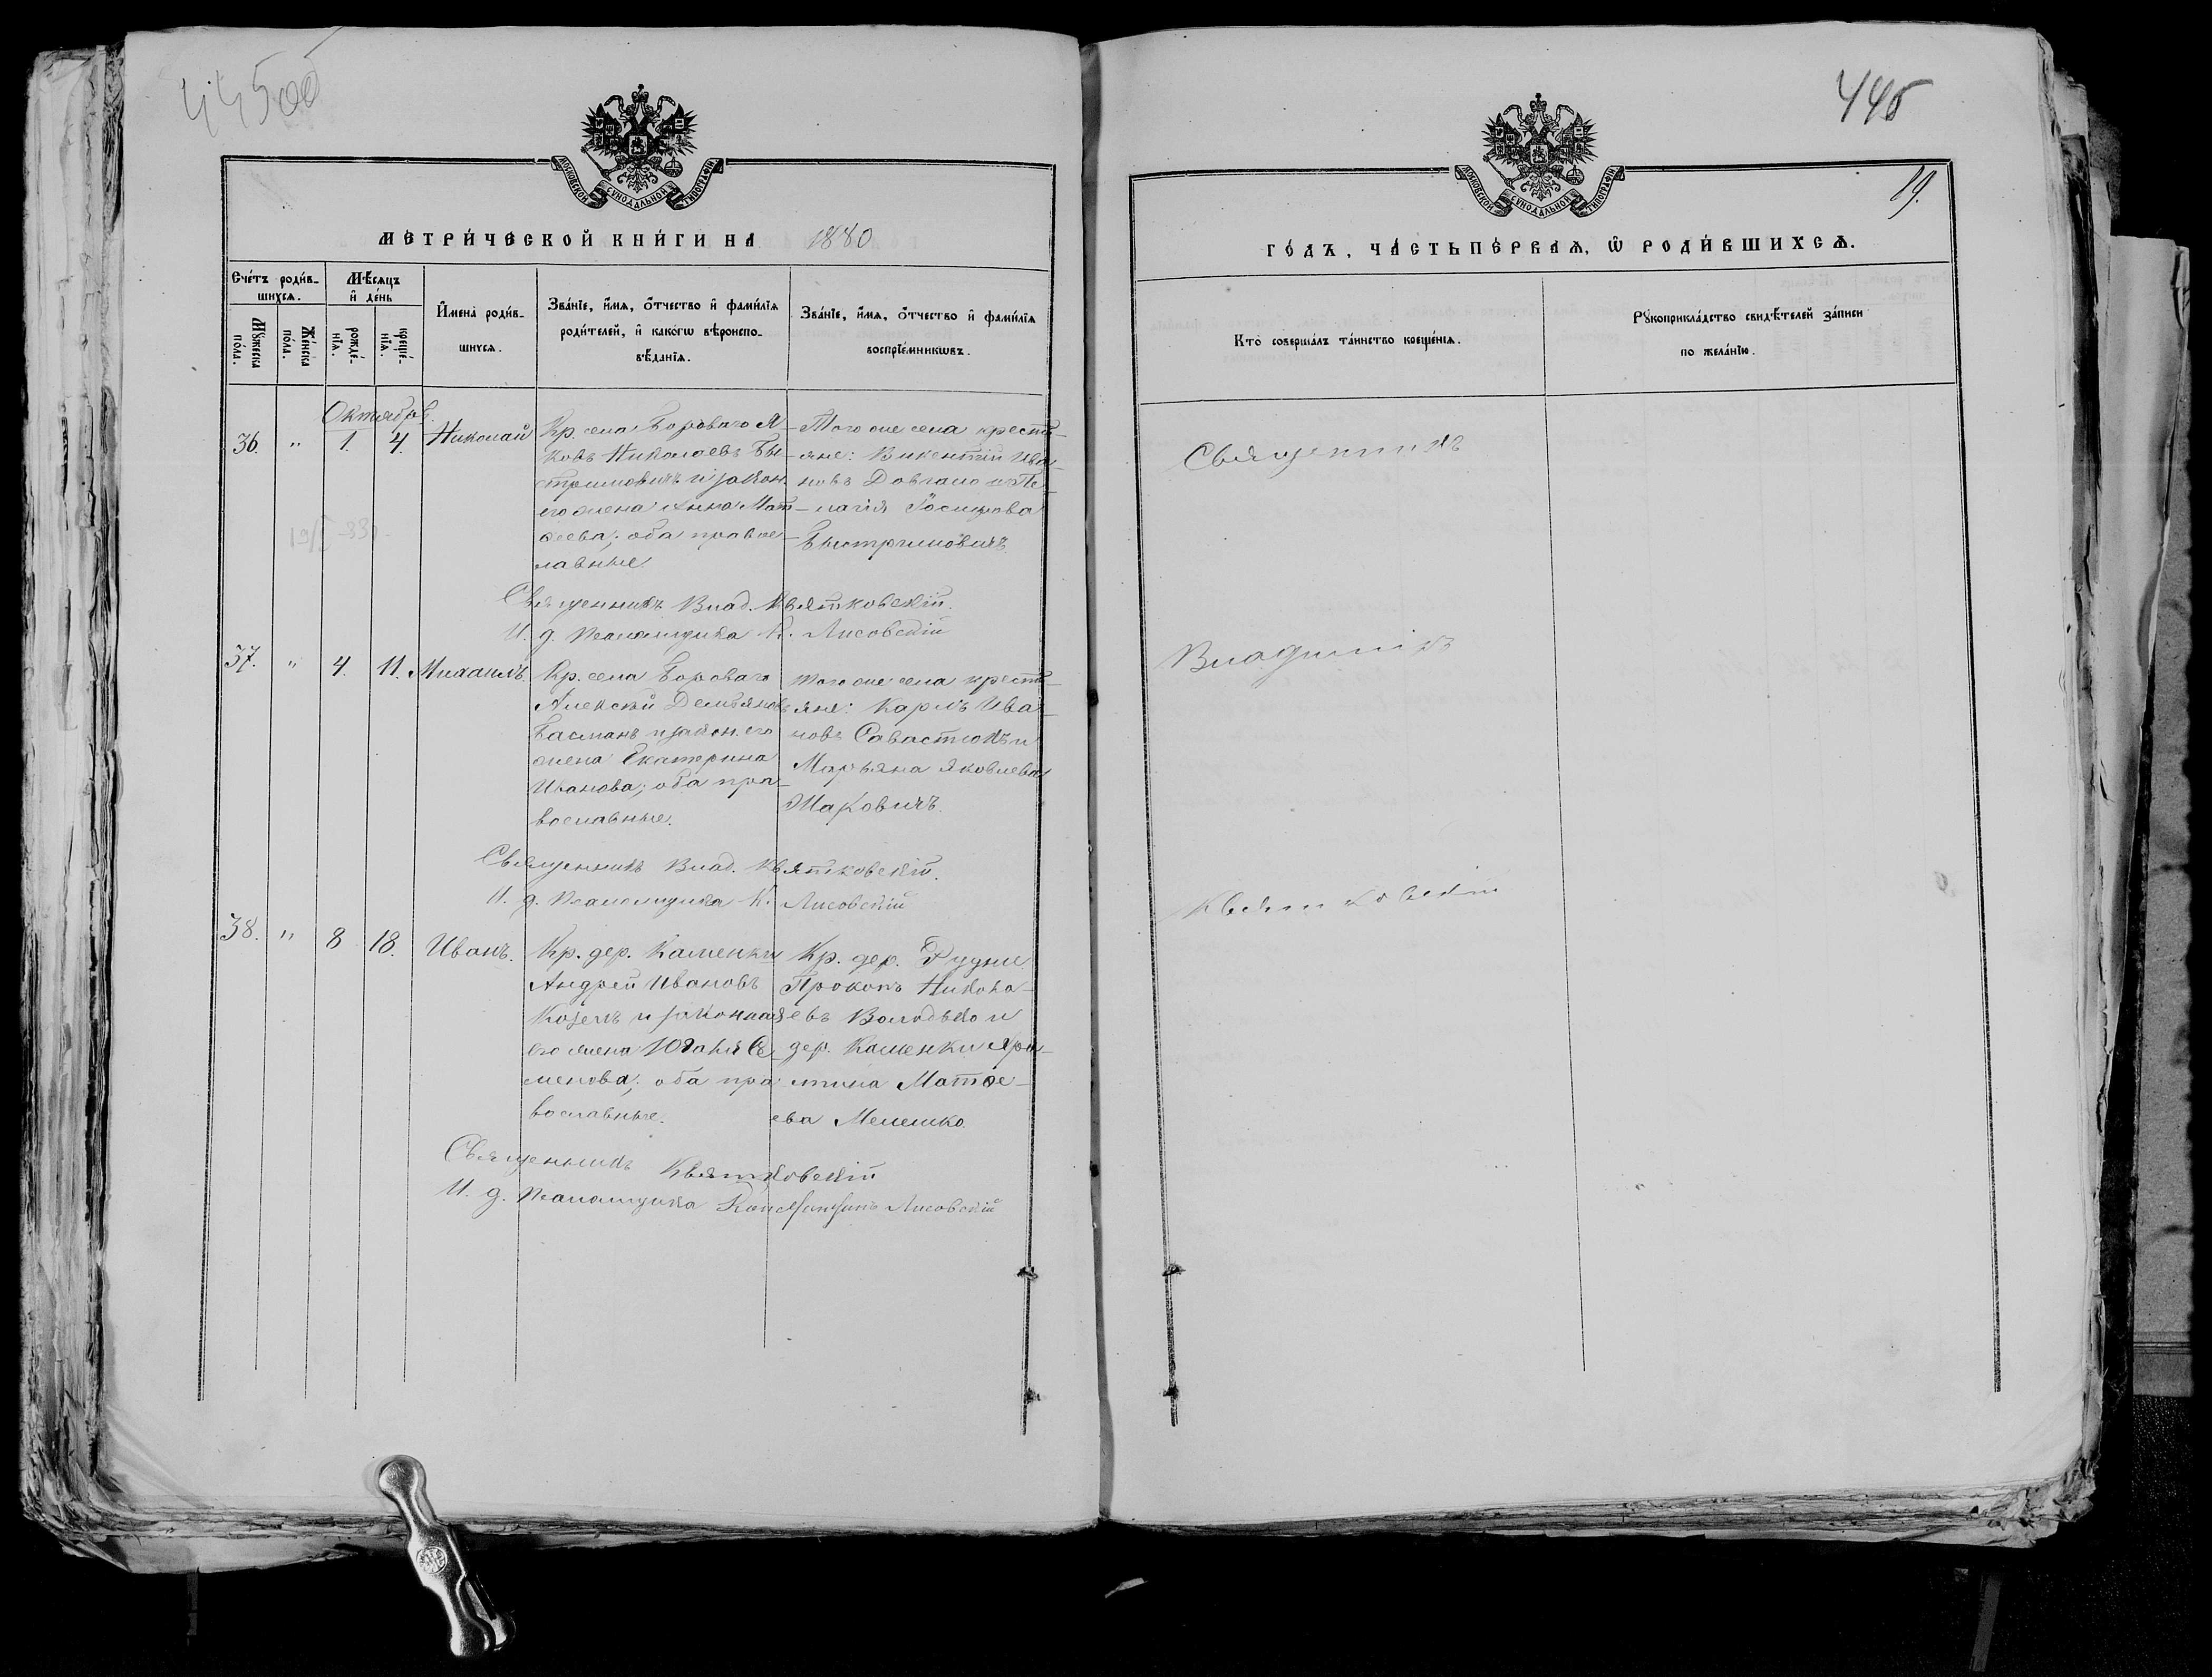 44500
МОСКОВСКОЙ СѴНОДАЛЬНОЙ ТИПОГРАФІИ
МЕТРИ́ЧЕСКОЙ КНИ́ГИ НА 1880
Счéтъ роди́в-
шихсѧ.
Мѣ́сѧцъ
и҆ дéнь
Мꙋ́жеска пóла.
Жéнска пóла.
рождé-
нїѧ.
крещé-
нїѧ.
И҆мена̀ роди́в-
шихсѧ.
Звáнїе, и҆́мѧ, ѻ҆́тчество и҆ фами́лїѧ
роди́телей, и҆ какóгѡ вѣроиспо-
вѣ́данїѧ.
Звáнїе, и҆́мѧ, ѻ҆́тчество и҆ фами́лїѧ
воспрїéмникѡвъ.
Октябрь.
36. " 1. 4. Николай
Кр. села Бороваго Я-
ковъ Николаевъ Бы-
стримовичъ и закон.
его жена Анна Мат-
ѳеева; оба правос-
лавные
Того же села кресть-
яне: Викентій Ива-
новъ Довгало и Пе-
лагія
Быстримовичъ
Священникъ Влад. Квятковскій.
И. д. Псаломщика К. Лисовскій
37. " 4. 11. Михаилъ
Кр. села Бороваго
Алексѣй Демьяновъ
Басманъ и закон. его
жена Екатерина
Иванова; оба пра-
вославные.
Того же села кресть-
яне: Карпъ Ива-
новъ Савастюкъ и
Марьяна Яковлева
Маковичъ.
Священникъ Влад. Квятковскій.
И. д. Псаломщика К. Лисовскій
38. " 8 18. Иванъ.
Кр. дер. Каменки
Андрей Ивановъ
Козелъ и законная
его жена Юліанія Се-
менова; оба пра-
вославные.
Кр. дер. Рудни
Прокопъ Никола-
евъ Володько и
дер. Каменки
Матѳе-
ева Мелешко
Священникъ Квятковскій
И. д. Псаломщика Константинъ Лисовскій
445
19.
МОСКОВСКОЙ СѴНОДАЛЬНОЙ ТИПОГРАФІИ
ГÓДЪ, ЧÁСТЬ ПÉРВАѦ, Ѽ РОДИ́ВШИХСѦ.
Ктó совершáлъ тáинство крещéнїѧ.
Рꙋкоприклáдство свидѣ́телей зáписи
по желáнїю.
Священникъ
Владиміръ
Квятковскій